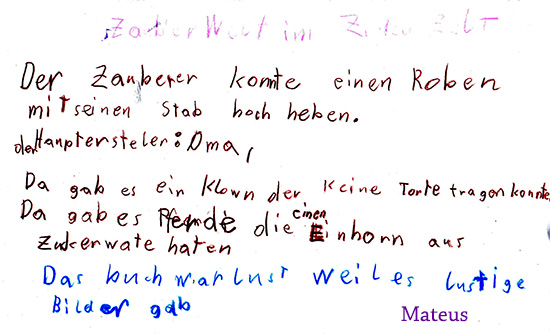 Zauber Welt im Zirkuszelt
Der Zauberer konnte einen Roben
mit seinen Stab hoch heben.
der Hauptersteler: Oma,
Da gab es ein Klown der keine Torte tragen konnte
Da gab es Pferde die einen Einhorn aus
Zukerwate haten
Das buch war lust weil es lustige
Bilder gab
Mateus